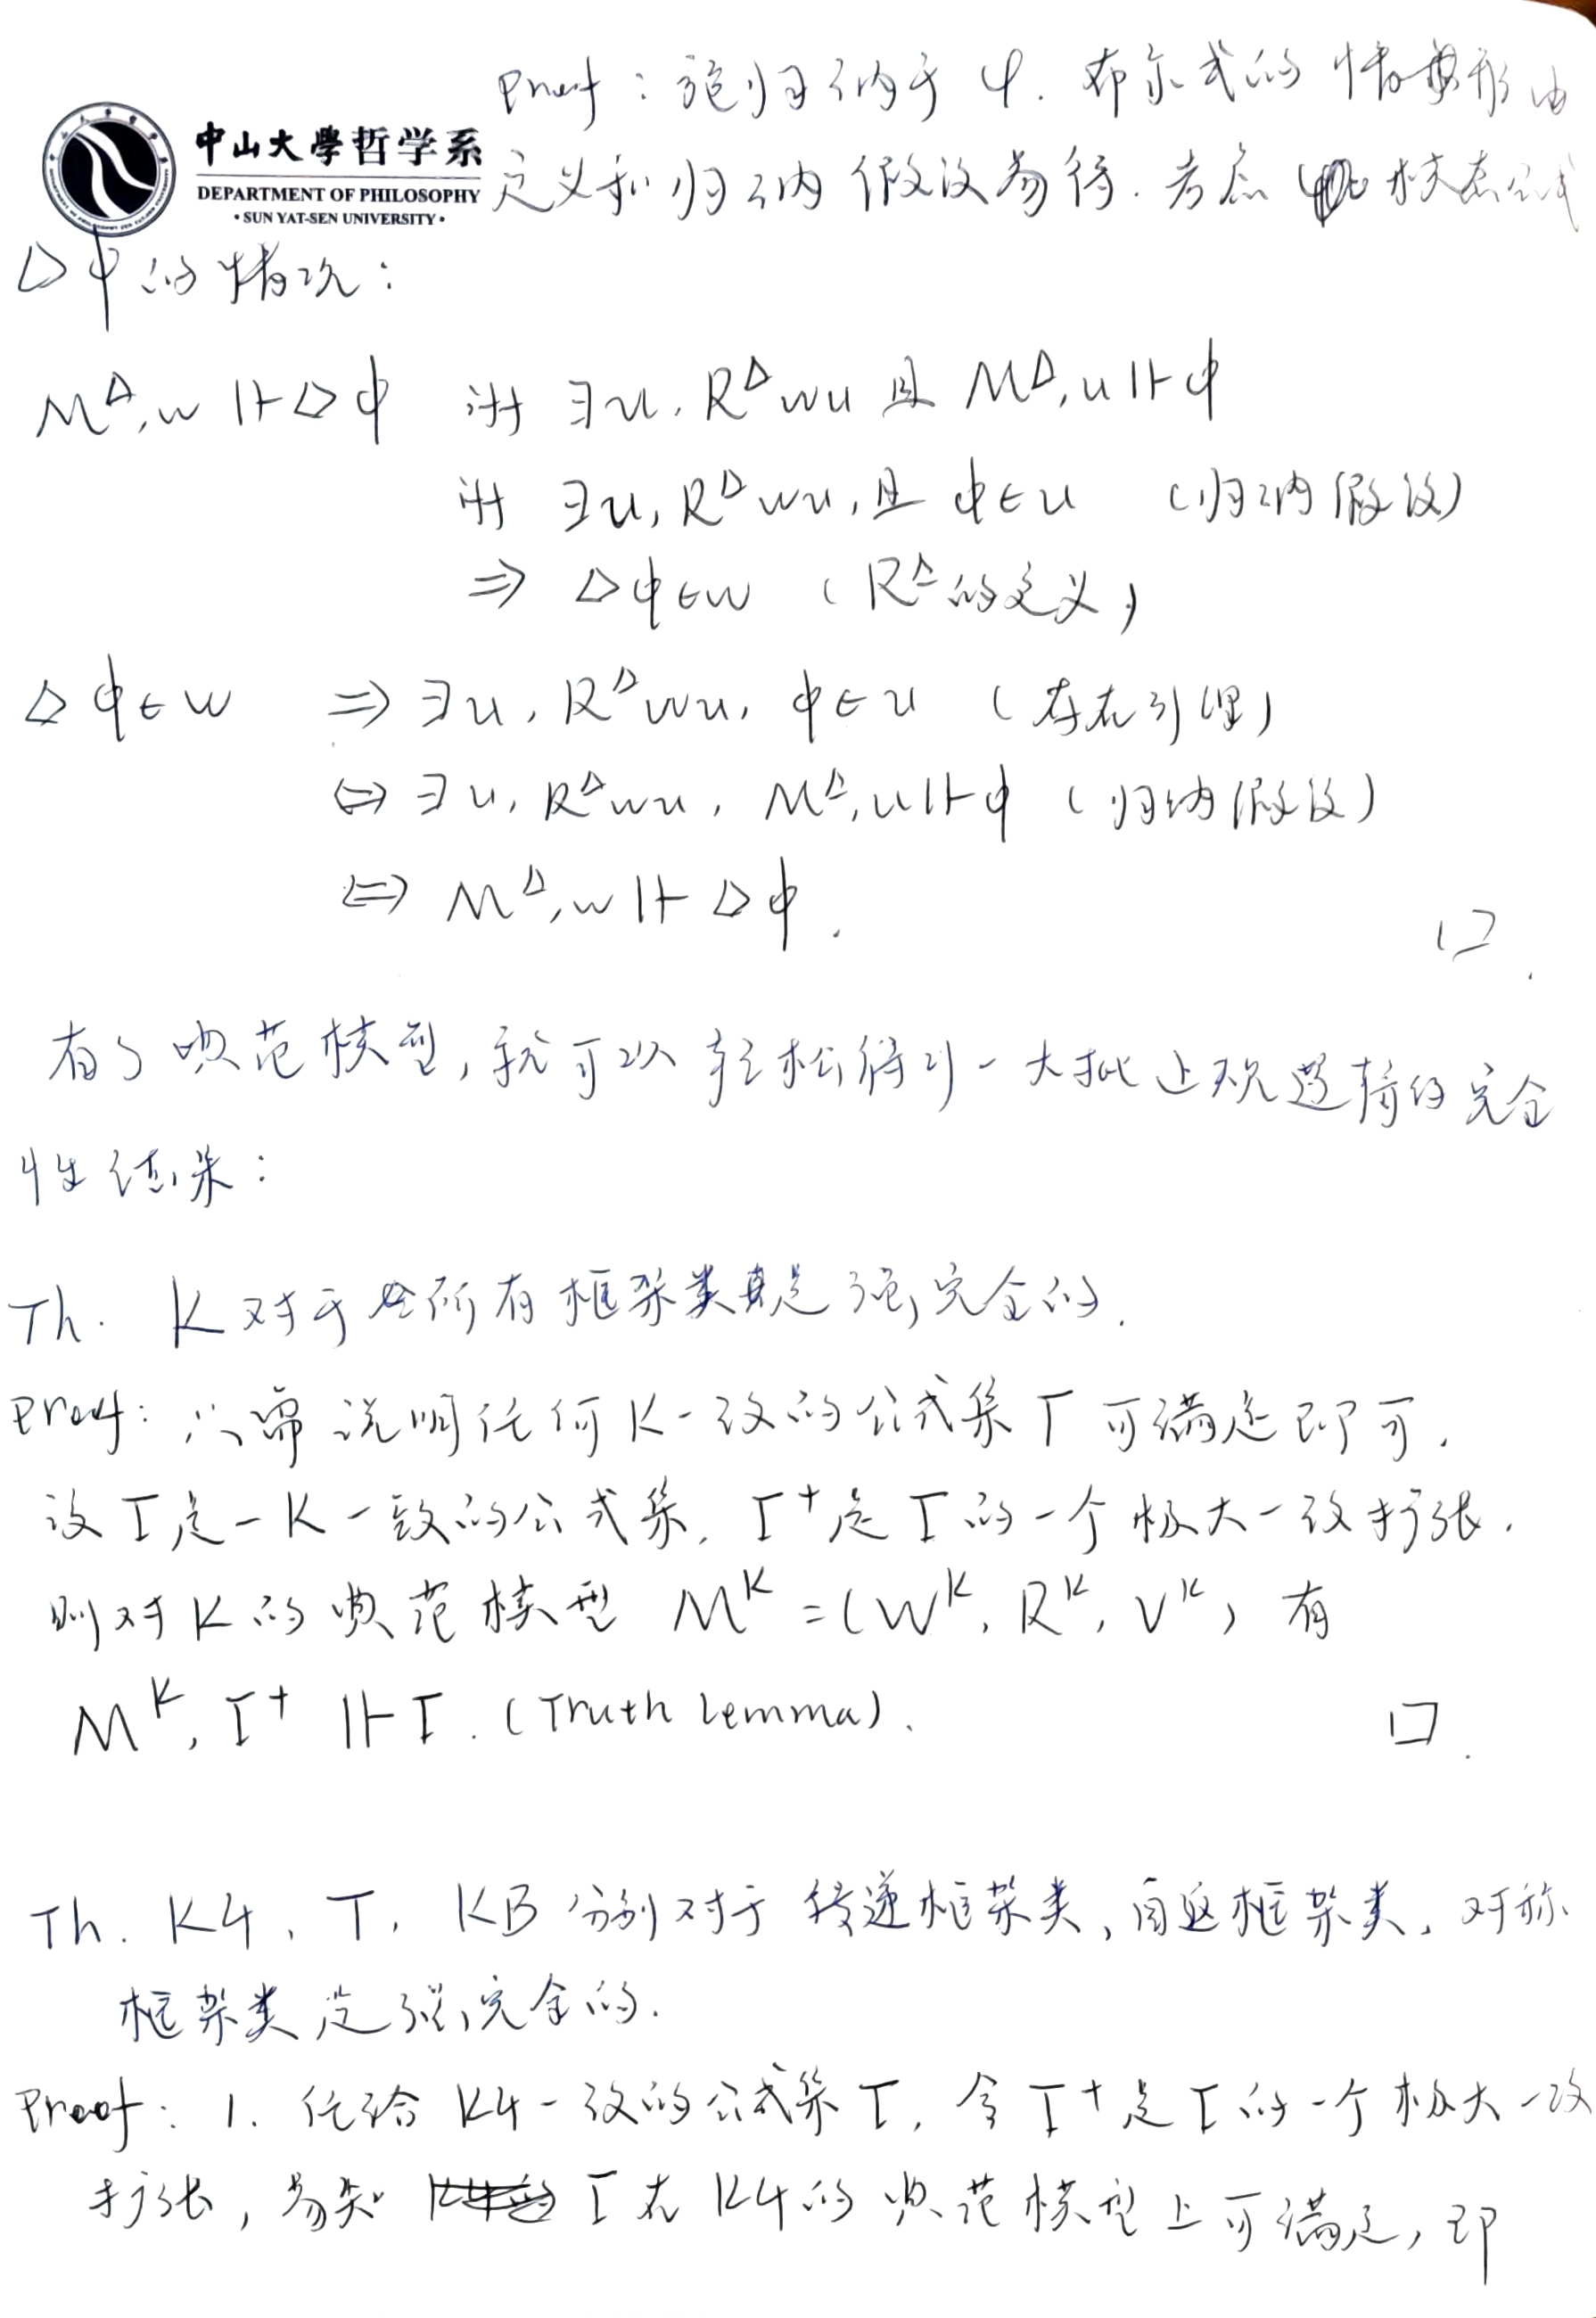 proof：施归纳于φ. 布尔式的情形由
中山大學哲学系
DEPARTMENT OF PHILOSOPHY
• SUN YAT-SEN UNIVERSITY •
定义和归纳假设易得. 考虑模态公式
△φ的情况：
M^△, w ⊩ △φ iff ∃u, R^△wu 且 M^△, u ⊩ φ
iff ∃u, R^△wu, 且 φ∈u （归纳假设）
⇒ △φ∈w （R^△的定义）
△φ∈w ⇒ ∃u, R^△wu, φ∈u （存在引理）
⇔ ∃u, R^△wu, M^△, u ⊩ φ （归纳假设）
⇔ M^△, w ⊩ △φ. □.
有了典范模型, 就可以轻松得到一大批上述逻辑的完全
性结果：
Th. K对于所有框架类是强完全的.
proof: 只需说明任何K一致的公式集Γ可满足即可.
设Γ是一K一致的公式集, Γ⁺是Γ的一个极大一致扩张.
则对K的典范模型 M^K = (W^K, R^K, V^K) 有
M^K, Γ⁺ ⊩ Γ. (Truth Lemma). □.
Th. K4, T, KB 分别对于传递框架类, 自返框架类, 对称
框架类是强完全的.
Proof: 1. 任给K4一致的公式集Γ, 令Γ⁺是Γ的一个极大一致
扩张, 易知 Γ在K4的典范模型上可满足, 即